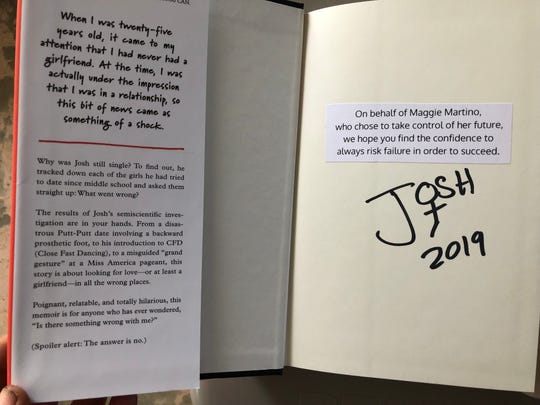 CAN.
When I was twenty-five
years old, it came to my
attention that I had never had a
girlfriend. At the time, I was
actually under the impression
that I was in a relationship, so
this bit of news came as
something of a shock.
Why was Josh still single? To find out, he
tracked down each of the girls he had tried
to date since middle school and asked them
straight up: What went wrong?
The results of Josh's semiscientific inves-
tigation are in your hands. From a disas-
trous Putt-Putt date involving a backward
prosthetic foot, to his introduction to CFD
(Close Fast Dancing), to a misguided "grand
gesture" at a Miss America pageant, this
story is about looking for love—or at least a
girlfriend—in all the wrong places.
Poignant, relatable, and totally hilarious, this
memoir is for anyone who has ever wondered,
"Is there something wrong with me?"
(Spoiler alert: The answer is no.)
On behalf of Maggie Martino,
who chose to take control of her future,
we hope you find the confidence to
always risk failure in order to succeed.
JOSH
2019